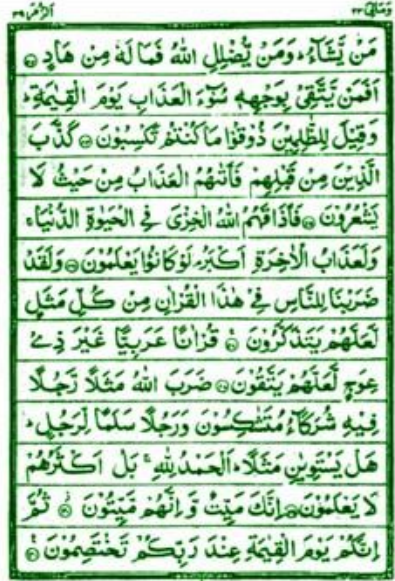 وَمَالِیَ ٢٣ اَلزُّمَر ٣٩
مَنْ يَّشَآءُ ؕ وَمَنْ يُّضْلِلِ اللّٰهُ فَمَا لَهٗ مِنْ هَادٍ ﴿٢٣﴾
اَفَمَنْ يَّتَّقِىْ بِوَجْهِهٖ سُوْٓءَ الْعَذَابِ يَوْمَ الْقِيٰمَةِ ؕ
وَقِيْلَ لِلظّٰلِمِيْنَ ذُوْقُوْا مَا كُنْتُمْ تَكْسِبُوْنَ ﴿٢٤﴾ كَذَّبَ
الَّذِيْنَ مِنْ قَبْلِهِمْ فَاَتٰٮهُمُ الْعَذَابُ مِنْ حَيْثُ لَا
يَشْعُرُوْنَ ﴿٢٥﴾ فَاَذَاقَهُمُ اللّٰهُ الْخِزْىَ فِى الْحَيٰوةِ الدُّنْيَا ۚ
وَلَعَذَابُ الْاٰخِرَةِ اَكْبَرُ ۘ لَوْ كَانُوْا يَعْلَمُوْنَ ﴿٢٦﴾ وَلَقَدْ
ضَرَبْنَا لِلنَّاسِ فِىْ هٰذَا الْقُرْاٰنِ مِنْ كُلِّ مَثَلٍ
لَّعَلَّهُمْ يَتَذَكَّرُوْنَ ﴿٢٧﴾ قُرْاٰنًا عَرَبِيًّا غَيْرَ ذِىْ
عِوَجٍ لَّعَلَّهُمْ يَتَّقُوْنَ ﴿٢٨﴾ ضَرَبَ اللّٰهُ مَثَلًا رَّجُلًا
فِيْهِ شُرَكَآءُ مُتَشٰكِسُوْنَ وَرَجُلًا سَلَمًا لِّرَجُلٍ ؕ
هَلْ يَسْتَوِيٰنِ مَثَلًا ؕ اَلْحَمْدُ لِلّٰهِ ۚ بَلْ اَكْثَرُهُمْ
لَا يَعْلَمُوْنَ ﴿٢٩﴾ اِنَّكَ مَيِّتٌ وَّاِنَّهُمْ مَّيِّتُوْنَ ﴿٣٠﴾ ثُمَّ
اِنَّكُمْ يَوْمَ الْقِيٰمَةِ عِنْدَ رَبِّكُمْ تَخْتَصِمُوْنَ ﴿٣١﴾